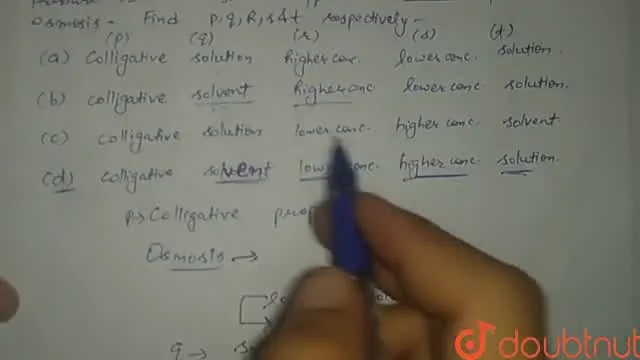 Osmosis. Find p, q, R, s & t respectively -
(p) (q) (r) (s) (t)
(a) Colligative solution higher conc. lower conc. solution.
(b) colligative solvent higher conc lower conc. solution.
(c) colligative solution lower conc. higher conc. solvent
(d) colligative solvent lower conc. higher conc. solution.
p → Colligative
Osmosis →
q →
doubtnut